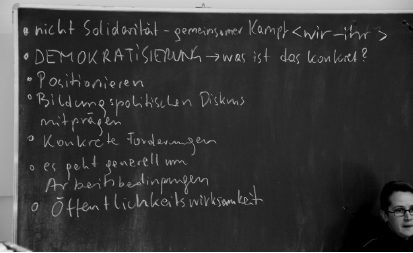 • nicht Solidarität - gemeinsamer Kampf <wir-ihr>
• DEMOKRATISIERUNG → was ist das konkret?
• Positionieren
• Bildungspolitischen Diskurs
mitprägen
• Konkrete Forderungen
• es geht generell um
Arbeitsbedingungen
• Öffentlichkeitswirksamkeit